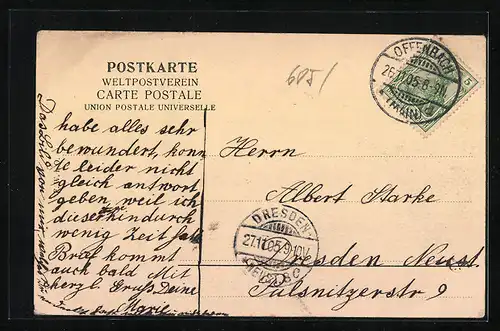 POSTKARTE
WELTPOSTVEREIN
CARTE POSTALE
UNION POSTALE UNIVERSELLE
605/
OFFENBACH
26.11.05. 8-9N.
(MAIN)
5
habe alles sehr
bewundert, konn
te leider nicht
gleich antwort
geben, weil ich
dieser hindurch
wenig Zeit
Brief kommt
auch bald Mit
herzl. Gruß Deine
Marie
Herrn
Albert Starke
DRESDEN
27.11.05. 9-10V.
Dresden Neust.
Pulsnitzerstr 9